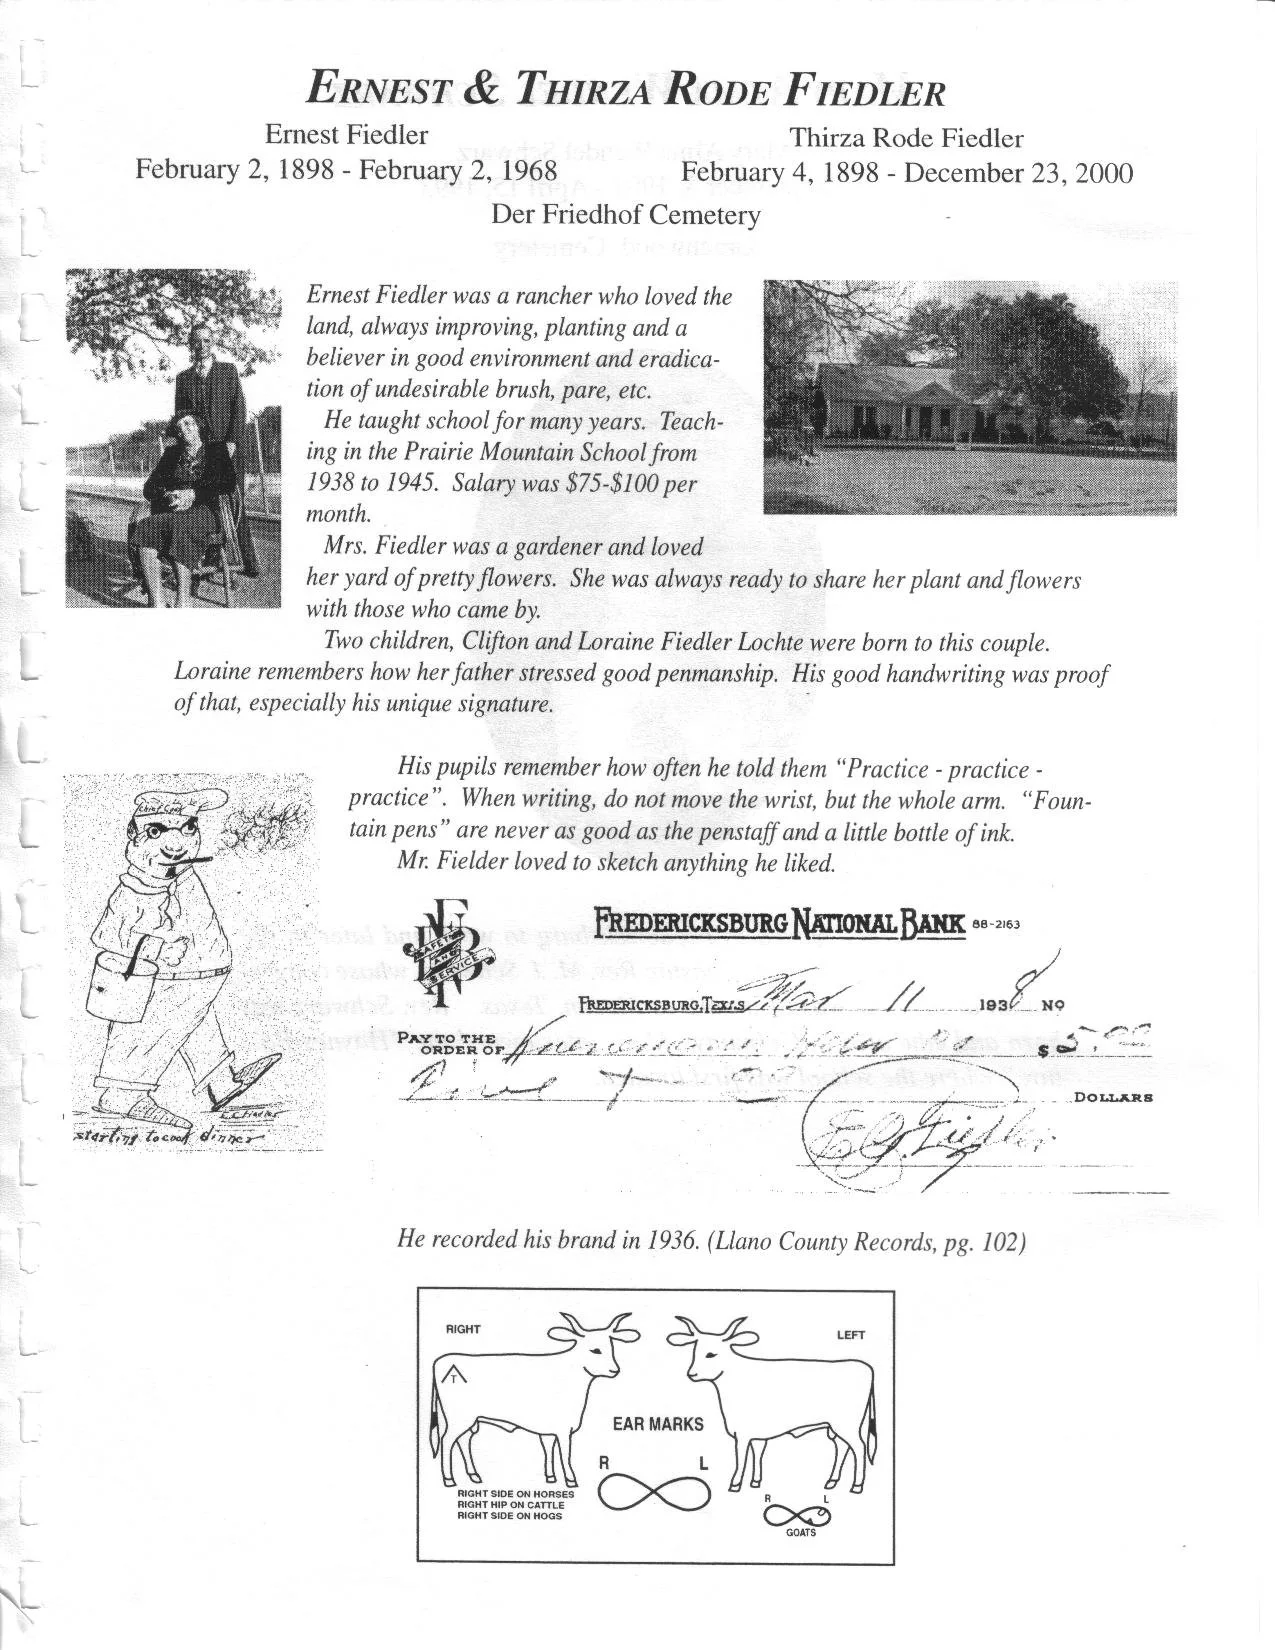 ERNEST & THIRZA RODE FIEDLER
Ernest Fiedler
February 2, 1898 - February 2, 1968
Thirza Rode Fiedler
February 4, 1898 - December 23, 2000
Der Friedhof Cemetery
Ernest Fiedler was a rancher who loved the
land, always improving, planting and a
believer in good environment and eradica-
tion of undesirable brush, pare, etc.
He taught school for many years. Teach-
ing in the Prairie Mountain School from
1938 to 1945. Salary was $75-$100 per
month.
Mrs. Fiedler was a gardener and loved
her yard of pretty flowers. She was always ready to share her plant and flowers
with those who came by.
Two children, Clifton and Loraine Fiedler Lochte were born to this couple.
Loraine remembers how her father stressed good penmanship. His good handwriting was proof
of that, especially his unique signature.
His pupils remember how often he told them "Practice - practice -
practice". When writing, do not move the wrist, but the whole arm. "Foun-
tain pens" are never as good as the penstaff and a little bottle of ink.
Mr. Fielder loved to sketch anything he liked.
Chief Cook
E.G. Fiedler
starting to cook dinner
FNB
SAFETY AND SERVICE
FREDERICKSBURG NATIONAL BANK 88-2163
FREDERICKSBURG, TEXAS Mar 11 1938 No
PAY TO THE
ORDER OF $ 5.00
Five DOLLARS
E G. Fiedler
He recorded his brand in 1936. (Llano County Records, pg. 102)
RIGHT
LEFT
T
EAR MARKS
R L
RIGHT SIDE ON HORSES
RIGHT HIP ON CATTLE
RIGHT SIDE ON HOGS
R L
GOATS